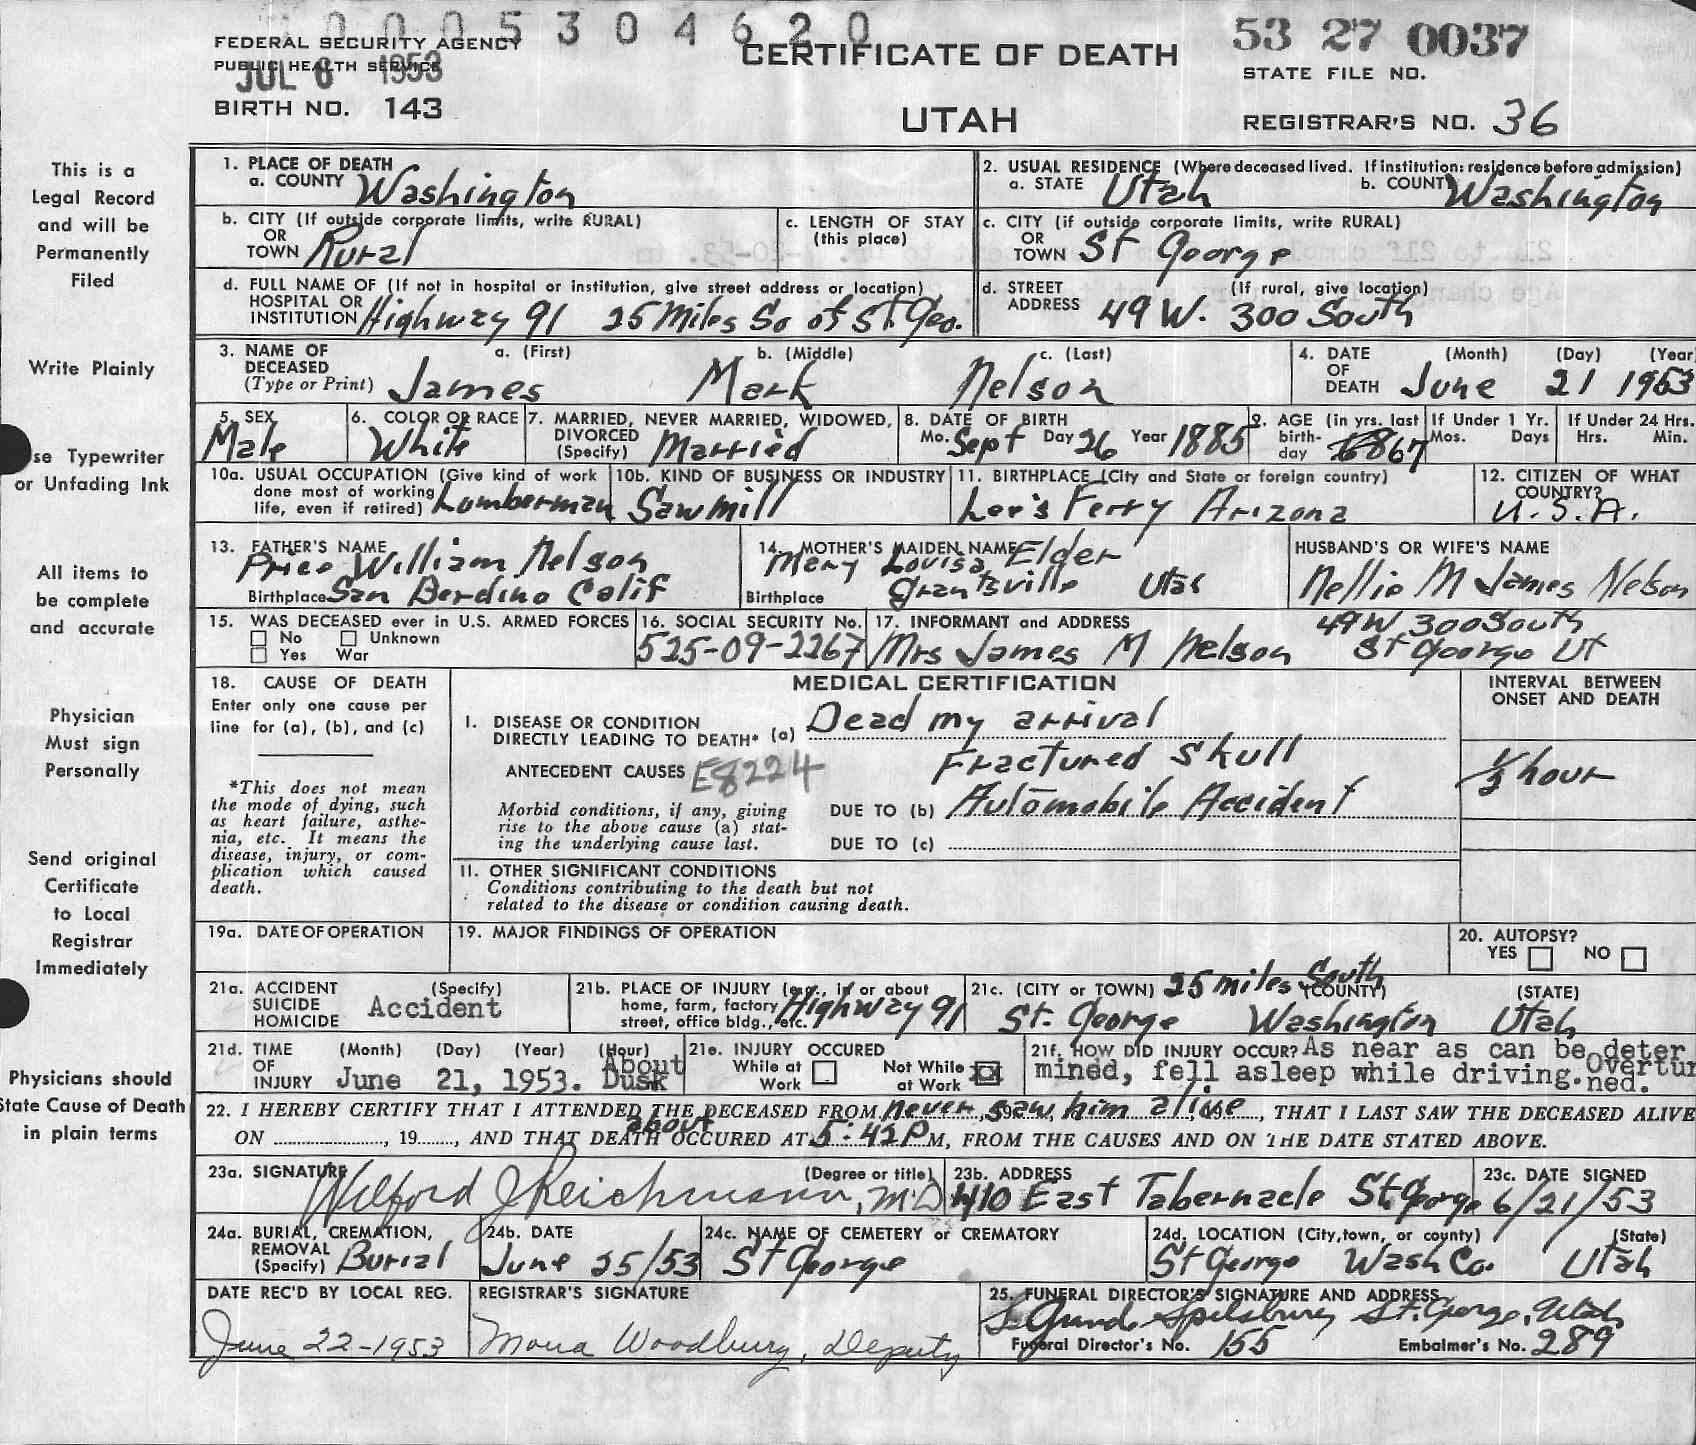 0005304620
FEDERAL SECURITY AGENCY
PUBLIC HEALTH SERVICE
JUL 6 1953
BIRTH NO. 143
CERTIFICATE OF DEATH
UTAH
53 27 0037
STATE FILE NO.
REGISTRAR'S NO. 36
This is a
Legal Record
and will be
Permanently
Filed
Write Plainly
se Typewriter
or Unfading Ink
All items to
be complete
and accurate
Physician
Must sign
Personally
Send original
Certificate
to Local
Registrar
Immediately
Physicians should
State Cause of Death
in plain terms
1. PLACE OF DEATH
a. COUNTY Washington
2. USUAL RESIDENCE (Where deceased lived. If institution: residence before admission)
a. STATE Utah b. COUNTY Washington
b. CITY (If outside corporate limits, write RURAL)
OR
TOWN Rural
c. LENGTH OF STAY
(this place)
c. CITY (if outside corporate limits, write RURAL)
OR
TOWN St George
d. FULL NAME OF (If not in hospital or institution, give street address or location)
HOSPITAL OR
INSTITUTION Highway 91 25 Miles So of St. Geo.
d. STREET (If rural, give location)
ADDRESS 49 W. 300 South
3. NAME OF a. (First) b. (Middle) c. (Last)
DECEASED
(Type or Print) James Mark Nelson
4. DATE (Month) (Day) (Year
OF
DEATH June 21 1953
5. SEX
Male
6. COLOR OR RACE
White
7. MARRIED, NEVER MARRIED, WIDOWED,
DIVORCED
(Specify) Married
8. DATE OF BIRTH
Mo. Sept Day 26 Year 1885
9. AGE (in yrs. last
birth-
day 67
If Under 1 Yr.
Mos. Days
If Under 24 Hrs.
Hrs. Min.
10a. USUAL OCCUPATION (Give kind of work
done most of working
life, even if retired) Lumberman
10b. KIND OF BUSINESS OR INDUSTRY
Sawmill
11. BIRTHPLACE (City and State or foreign country)
Lee's Ferry Arizona
12. CITIZEN OF WHAT
COUNTRY?
U.S.A.
13. FATHER'S NAME
Price William Nelson
Birthplace San Berdino Calif
14. MOTHER'S MAIDEN NAME
Mary Louisa Elder
Birthplace Grantsville Utah
HUSBAND'S OR WIFE'S NAME
Nellie M James Nelson
15. WAS DECEASED ever in U.S. ARMED FORCES
No Unknown
Yes War
16. SOCIAL SECURITY No.
525-09-2267
17. INFORMANT and ADDRESS
49 W 300 South
Mrs James M Nelson St George Ut
18. CAUSE OF DEATH
Enter only one cause per
line for (a), (b), and (c)
*This does not mean
the mode of dying, such
as heart failure, asthe-
nia, etc. It means the
disease, injury, or com-
plication which caused
death.
MEDICAL CERTIFICATION
I. DISEASE OR CONDITION
DIRECTLY LEADING TO DEATH* (a) Dead my arrival
Fractured Skull
ANTECEDENT CAUSES E8224
Morbid conditions, if any, giving
rise to the above cause (a) stat-
ing the underlying cause last.
DUE TO (b) Automobile Accident
DUE TO (c)
INTERVAL BETWEEN
ONSET AND DEATH
hour
II. OTHER SIGNIFICANT CONDITIONS
Conditions contributing to the death but not
related to the disease or condition causing death.
19a. DATE OF OPERATION
19. MAJOR FINDINGS OF OPERATION
20. AUTOPSY?
YES NO
21a. ACCIDENT (Specify)
SUICIDE
HOMICIDE Accident
21b. PLACE OF INJURY (e.g., in or about
home, farm, factory
street, office bldg., etc. Highway 91
21c. (CITY or TOWN) 25 miles South (COUNTY) (STATE)
St. George Washington Utah
21d. TIME (Month) (Day) (Year) (Hour)
OF
INJURY June 21, 1953. About Dusk
21e. INJURY OCCURED
While at Work
Not While at Work
21f. HOW DID INJURY OCCUR? As near as can be deter
mined, fell asleep while driving. Overtur
ned.
22. I HEREBY CERTIFY THAT I ATTENDED THE DECEASED FROM never saw him alive, THAT I LAST SAW THE DECEASED ALIVE
ON , 19 , AND THAT DEATH OCCURED AT about 5:42 P M, FROM THE CAUSES AND ON THE DATE STATED ABOVE.
23a. SIGNATURE (Degree or title)
Wilford J Reichmann, M.D
23b. ADDRESS
410 East Tabernacle St. George
23c. DATE SIGNED
6/21/53
24a. BURIAL, CREMATION,
REMOVAL
(Specify) Burial
24b. DATE
June 25/53
24c. NAME OF CEMETERY or CREMATORY
St George
24d. LOCATION (City, town, or county) (State)
St George Wash Co. Utah
DATE REC'D BY LOCAL REG.
June 22-1953
REGISTRAR'S SIGNATURE
Mona Woodbury, Deputy
25. FUNERAL DIRECTOR'S SIGNATURE AND ADDRESS
Spilsbury St. George, Utah
Funeral Director's No. 155 Embalmer's No. 289